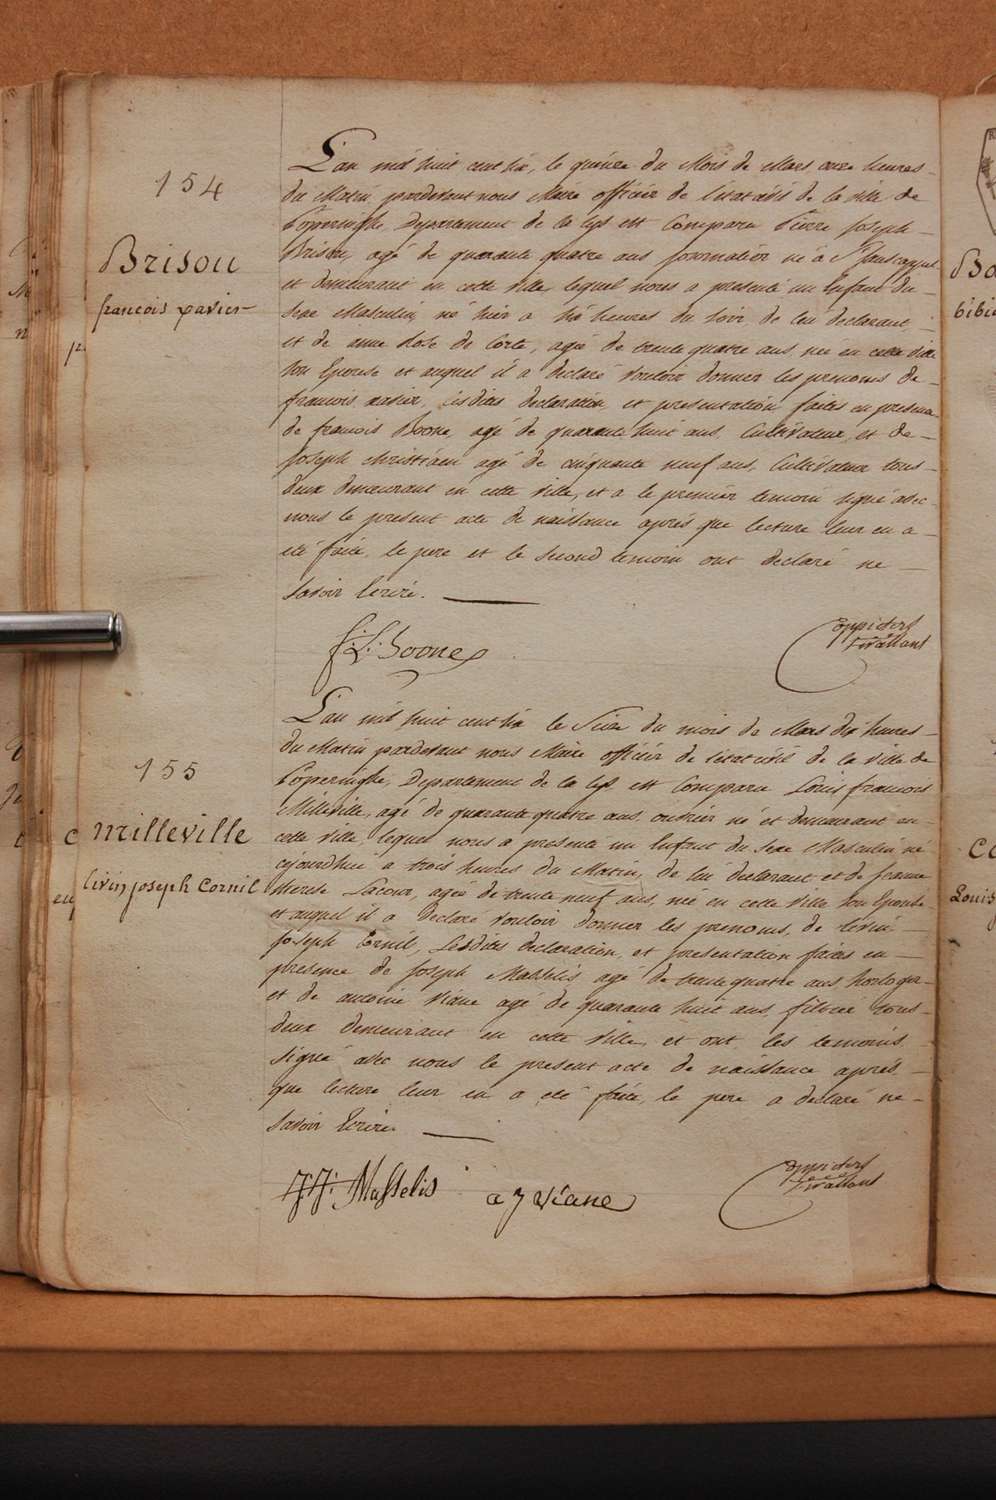 154
Brisou
francois xavier
L'an mil huit cent six, le quinze du Mois de Mars onze heures
du Matin pardevant nous Maire officier de l'etat civil de la ville de
Poperinghe, Departement de la Lys est Comparu Pierre Joseph
Brisou, agé de quarante quatre ans journalier né à
et demeurant en cette ville lequel nous a presenté un Enfant du
Sexe Masculin, né hier a six heures du soir, de lui declarant,
et de anne Rose de Corte, agée de trente quatre ans, née en cette ville
son Epouse et auquel il a declaré vouloir donner les prenoms de
francois xavier, lesdites declaration, et presentation faites en presence
de francois Boone, agé de quarante huit ans, Cultivateur, et de
Joseph Christiaen agé de cinquante neuf ans, Cultivateur tous
deux demeurant en cette ville, et a le premier temoin signé avec
nous le present acte de naissance après que lecture leur en a
été faite, le pere et le second temoin ont declaré ne
savoir Ecrire.
f: L: Boone
155
Milleville
livin joseph Cornil
L'an mil huit cent six le Seize du mois de Mars dix heures
du Matin pardevant nous Maire officier de l'etat civil de la ville de
Poperinghe, Departement de la Lys est Comparu Louis francois
Milleville, agé de quarante quatre ans, ouvrier né et demeurant en
cette ville, lequel nous a presenté un Enfant du Sexe Masculin né
cejourdhui a trois heures du Matin, de lui declarant et de
therese Lacour, agée de trente neuf ans, née en cette ville son Epouse
et auquel il a declaré vouloir donner les prenoms, de Levin
Joseph Cornil, Lesdites declaration, et presentation faites en
presence de Joseph Masselis agé de trente quatre ans horloger
et de antoine Viane agé de quarante huit ans, tous
deux demeurant en cette ville, et ont les temoins
signé avec nous le present acte de naissance après
que lecture leur en a été faite, le pere a declaré ne
savoir Ecrire.
J: J: Masselis
a J Viane